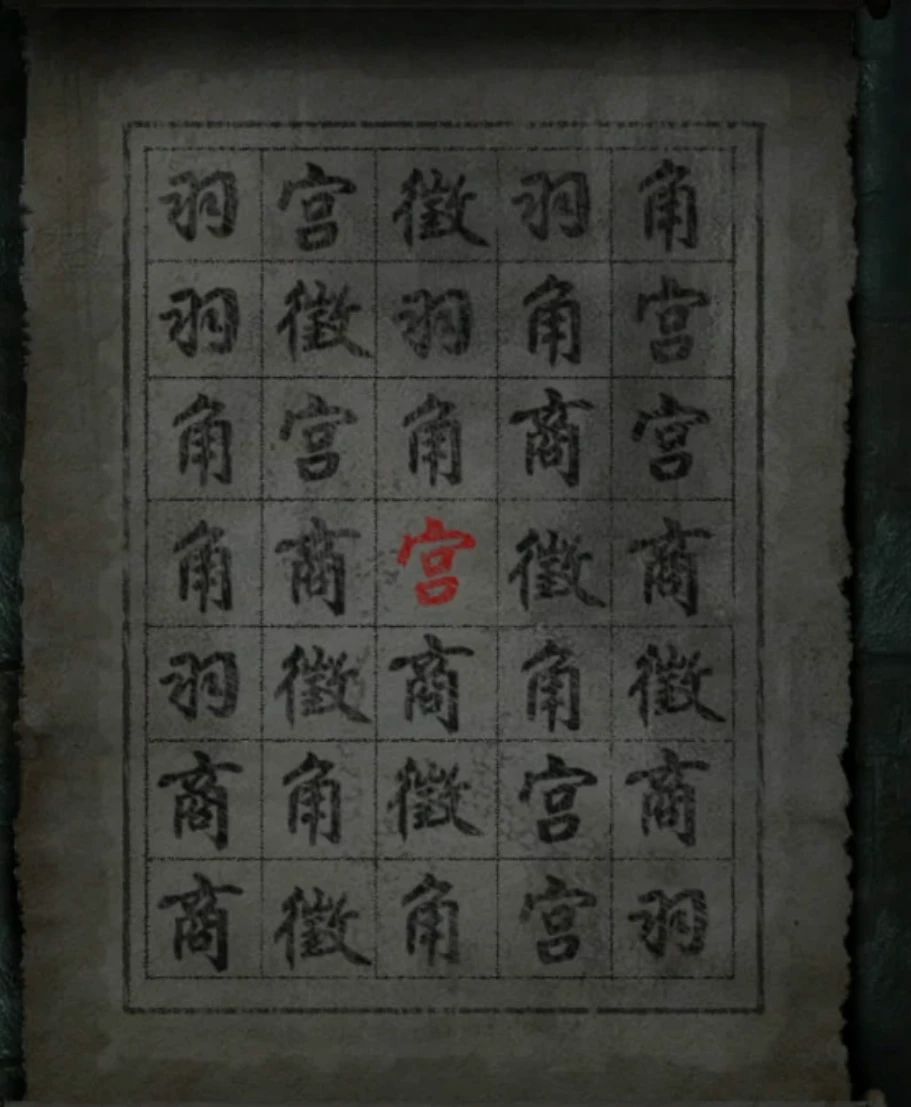 羽宫徵羽角
羽徵羽角宫
角宫角商宫
角商宫徵商
羽徵商角徵
商角徵宫商
商徵角宫羽